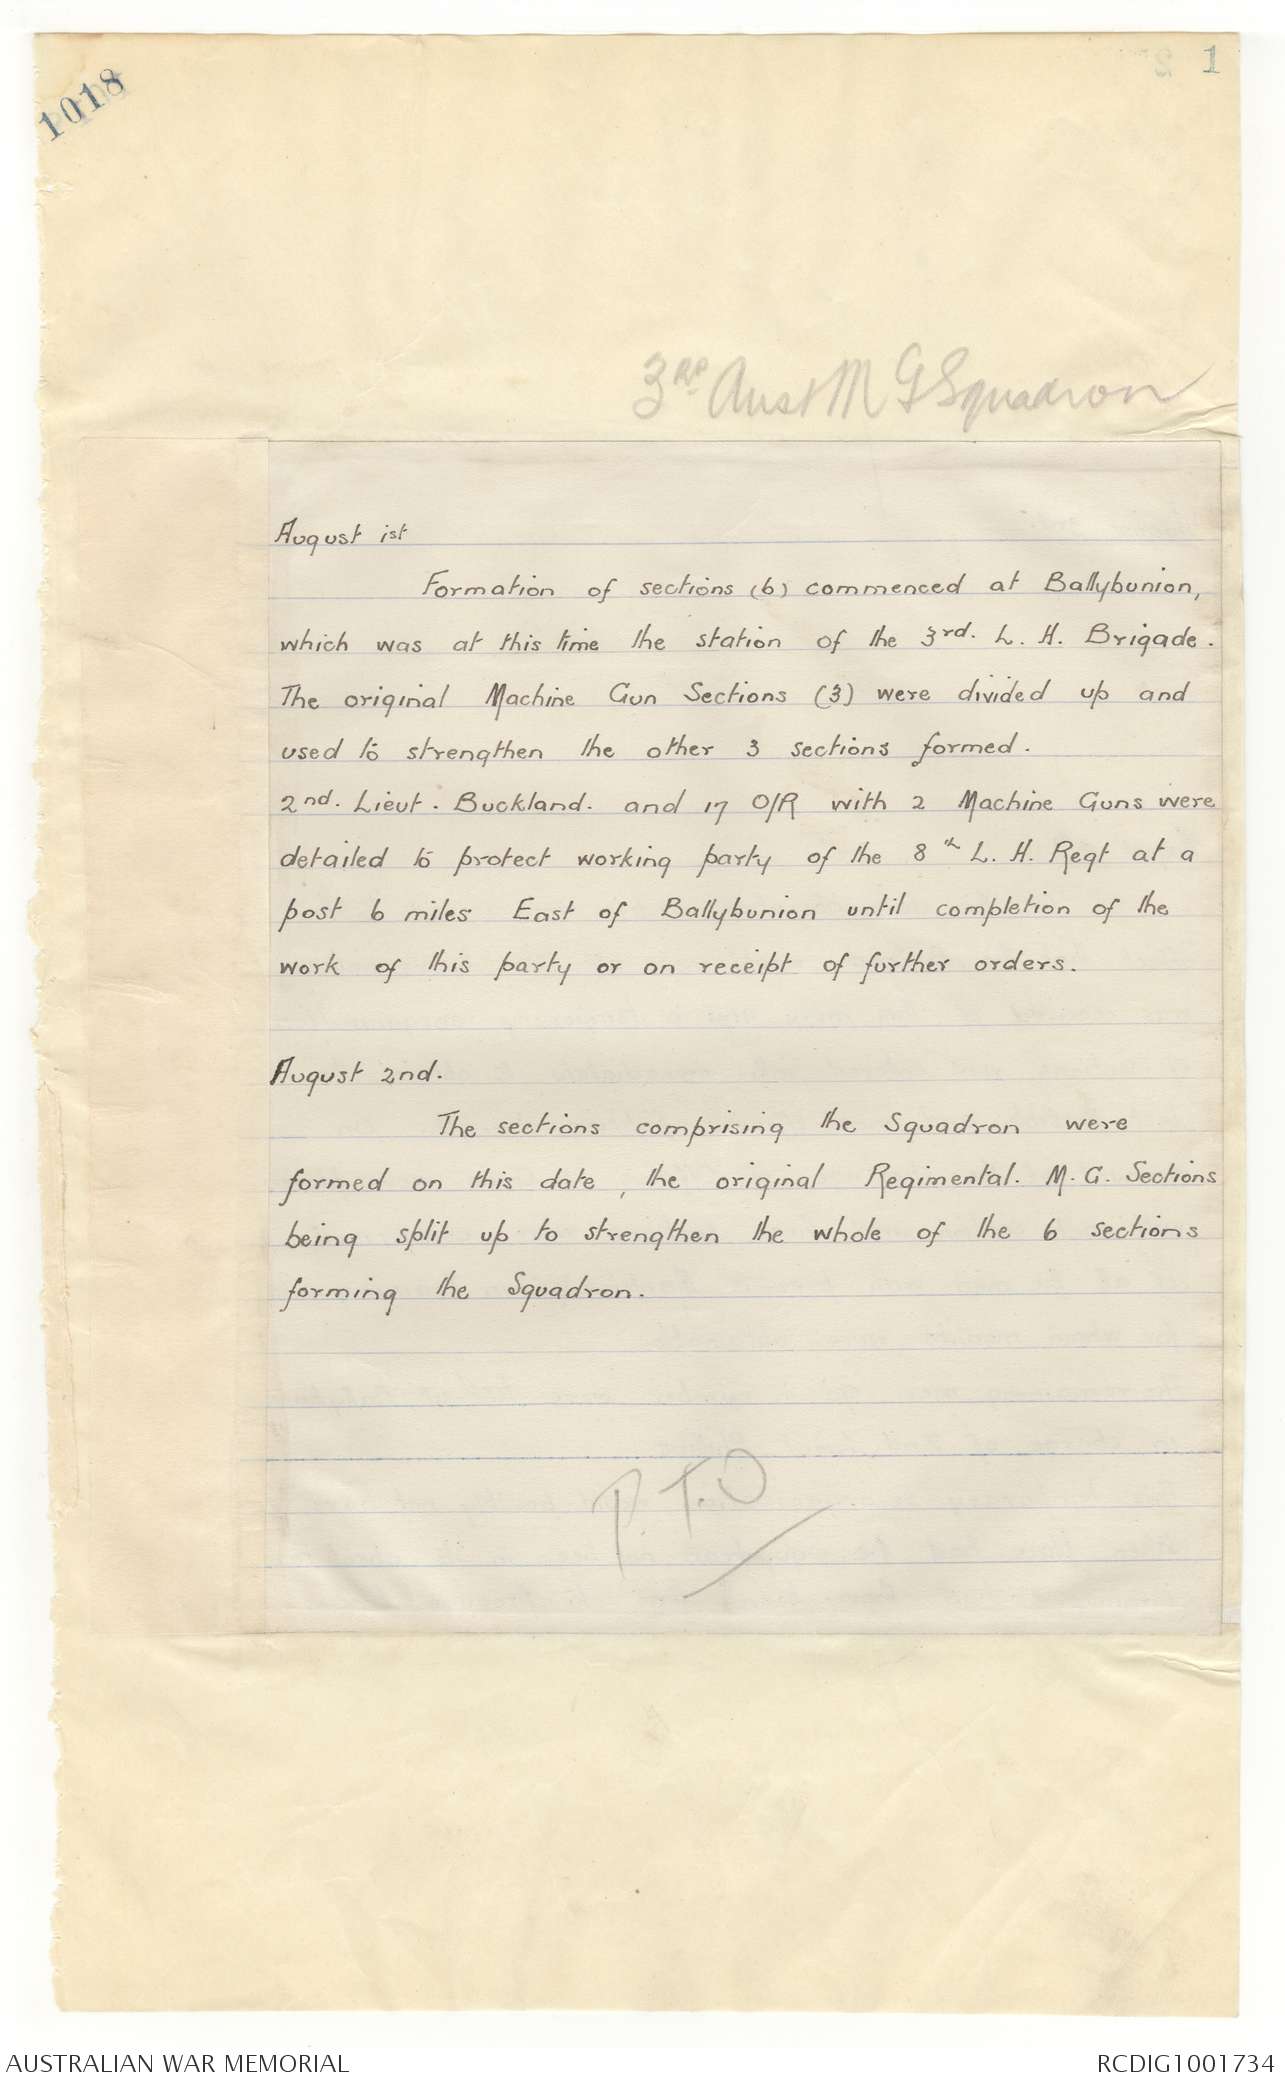 1018
1
3RD Aust M G Squadron
August 1st
Formation of sections (6) commenced at Ballybunion,
which was at this time the station of the 3rd. L. H. Brigade.
The original Machine Gun Sections (3) were divided up and
used to strengthen the other 3 sections formed.
2nd. Lieut. Buckland. and 17 O/R with 2 Machine Guns were
detailed to protect working party of the 8th L. H. Regt at a
post 6 miles East of Ballybunion until completion of the
work of this party or on receipt of further orders.
August 2nd.
The sections comprising the Squadron were
formed on this date, the original Regimental. M. G. Sections
being split up to strengthen the whole of the 6 sections
forming the Squadron.
P.T.O
AUSTRALIAN WAR MEMORIAL
RCDIG1001734